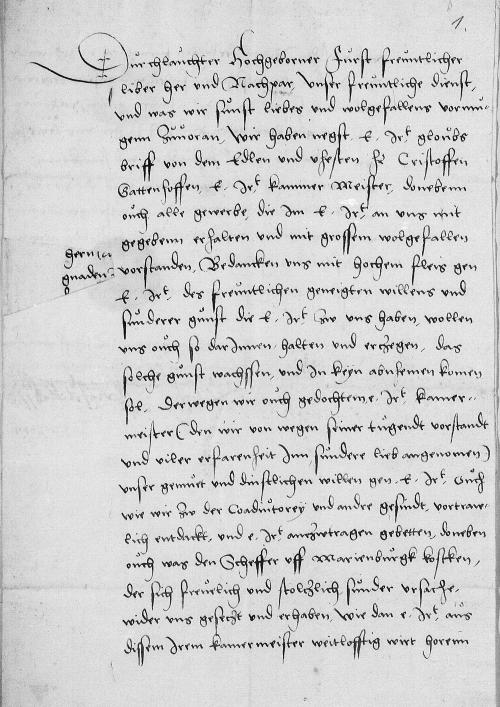 1.
Durchlauchter Hochgeborner Furst freuntlicher
liber her und Nachpar, Unser freuntliche dienst,
und was wir sunst liebes und wolgefallens vormu-
genn zuuoran, Wie haben negst E. Irt gloubs
briff von dem Edlen und vhesten hr Cristoffen
Gattenhoffen E. Irt kammer Meister, donebenn
ouch alle gewerbe, die Im E. Irt an uns mit
gegebenn erhalten und mit grossem wolgefallen
hern
gnaden
vorstanden, Bedancken uns mit hochem fleis gen
E. Irt des freuntlichen geneigten willens und
sunderer gunst die E. Irt zw uns haben, wollen
uns ouch so dar Innen halten und erczegen, das
solche gunst wachssen, und In keyn abnhemen komen
sol. Derwegen wir ouch gedochtem e. Irt kamer-
meister (den wir von wegen seiner tugendt vorstandt
und viler erfarenheit Inn sundere lieb angenomen)
unser gemuet und dinstlichen willen gen E. Irt Ouch
wie wir zw der Coadiutorey und andre gesindt, vortraw-
lich entdackt, und e. Irt anczwtragen gebetten, doneben
ouch was den Scheffer uff Marienburgk kostken,
der sich freuelich und stolczlich sunder ursache,
wider uns geseczt und erhaben, Wie dan e. Irt aus
dissem Irem kamermeister weitlofftig wirt horenn